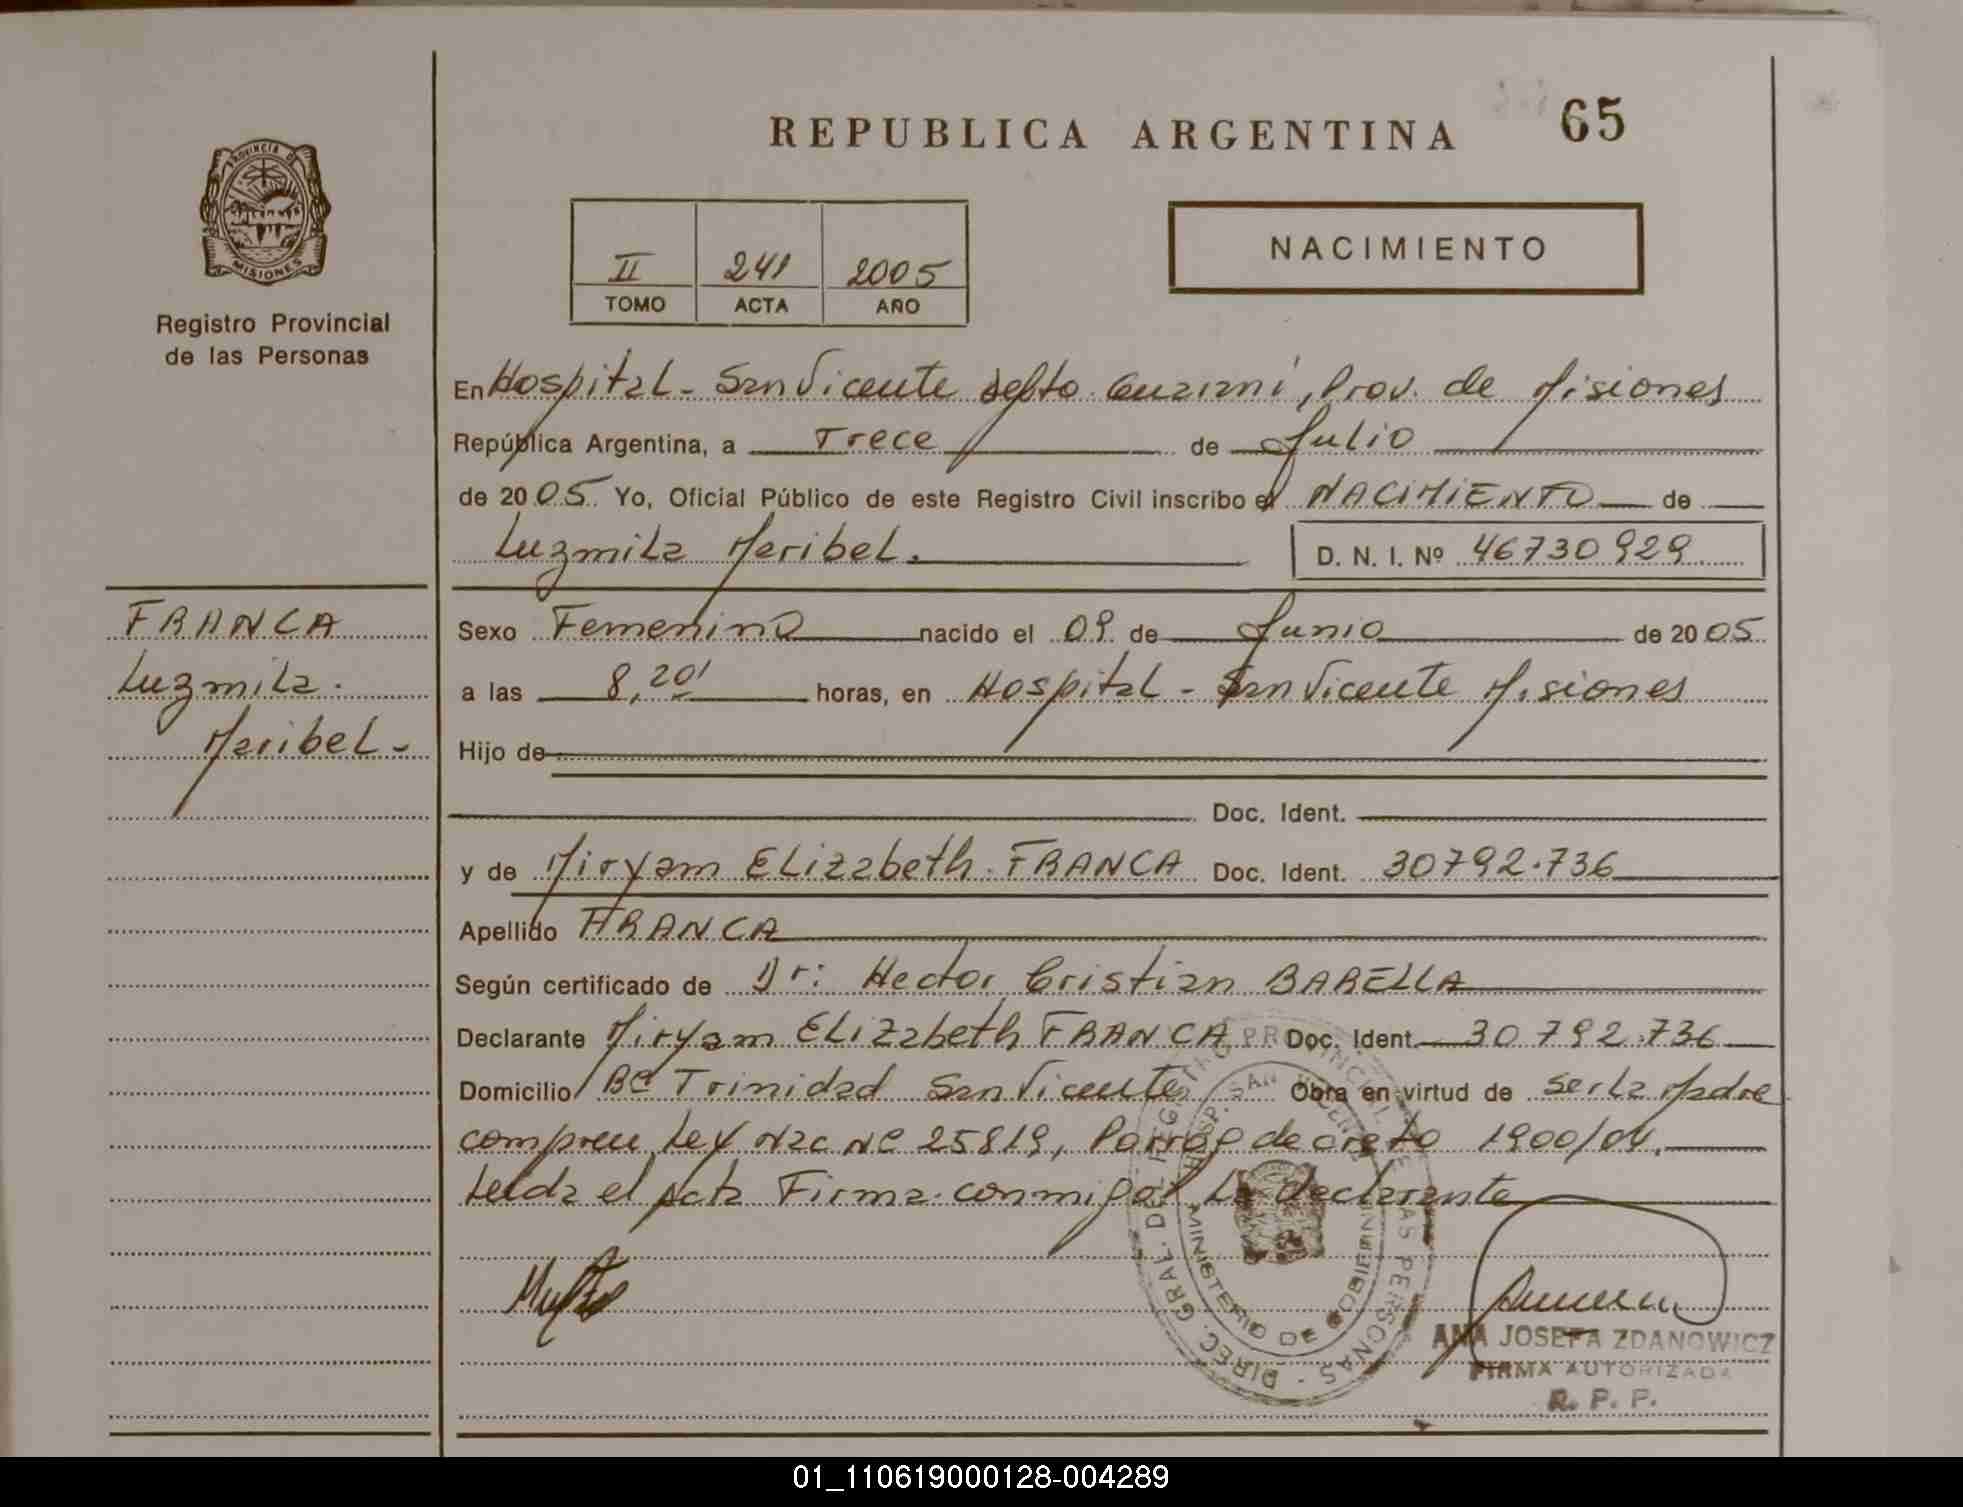 REPUBLICA ARGENTINA 65
PROVINCIA DE
MISIONES
Registro Provincial
de las Personas
II 241 2005
TOMO ACTA AÑO
NACIMIENTO
En Hospital - San Vicente depto Guarani, Prov. de Misiones
República Argentina, a Trece de Julio
de 2005 Yo, Oficial Público de este Registro Civil inscribo el NACIMIENTO de
Luzmila Maribel. D. N. I. Nº 46730929
FRANCA
Luzmila
Maribel -
Sexo Femenino nacido el 09 de Junio de 2005
a las 8,20' horas, en Hospital - San Vicente Misiones
Hijo de
Doc. Ident.
y de Miryam Elizabeth FRANCA Doc. Ident. 30792.736
Apellido FRANCA
Según certificado de Dr: Hector Cristian BARELLA
Declarante Miryam Elizabeth FRANCA Doc. Ident. 30792.736
Domicilio Bº Trinidad San Vicente Obra en virtud de ser la Madre
Ley Nac Nº 25819, decreto 1900/04.
Leida el Acta Firma conmigo La declarante
DIREC. GRAL. DEL REGISTRO PROVINCIAL DE LAS PERSONAS
HOSP. SAN VICENTE
MINISTERIO DE GOBIERNO
ANA JOSEFA ZDANOWICZ
FIRMA AUTORIZADA
R. P. P.
01_110619000128-004289